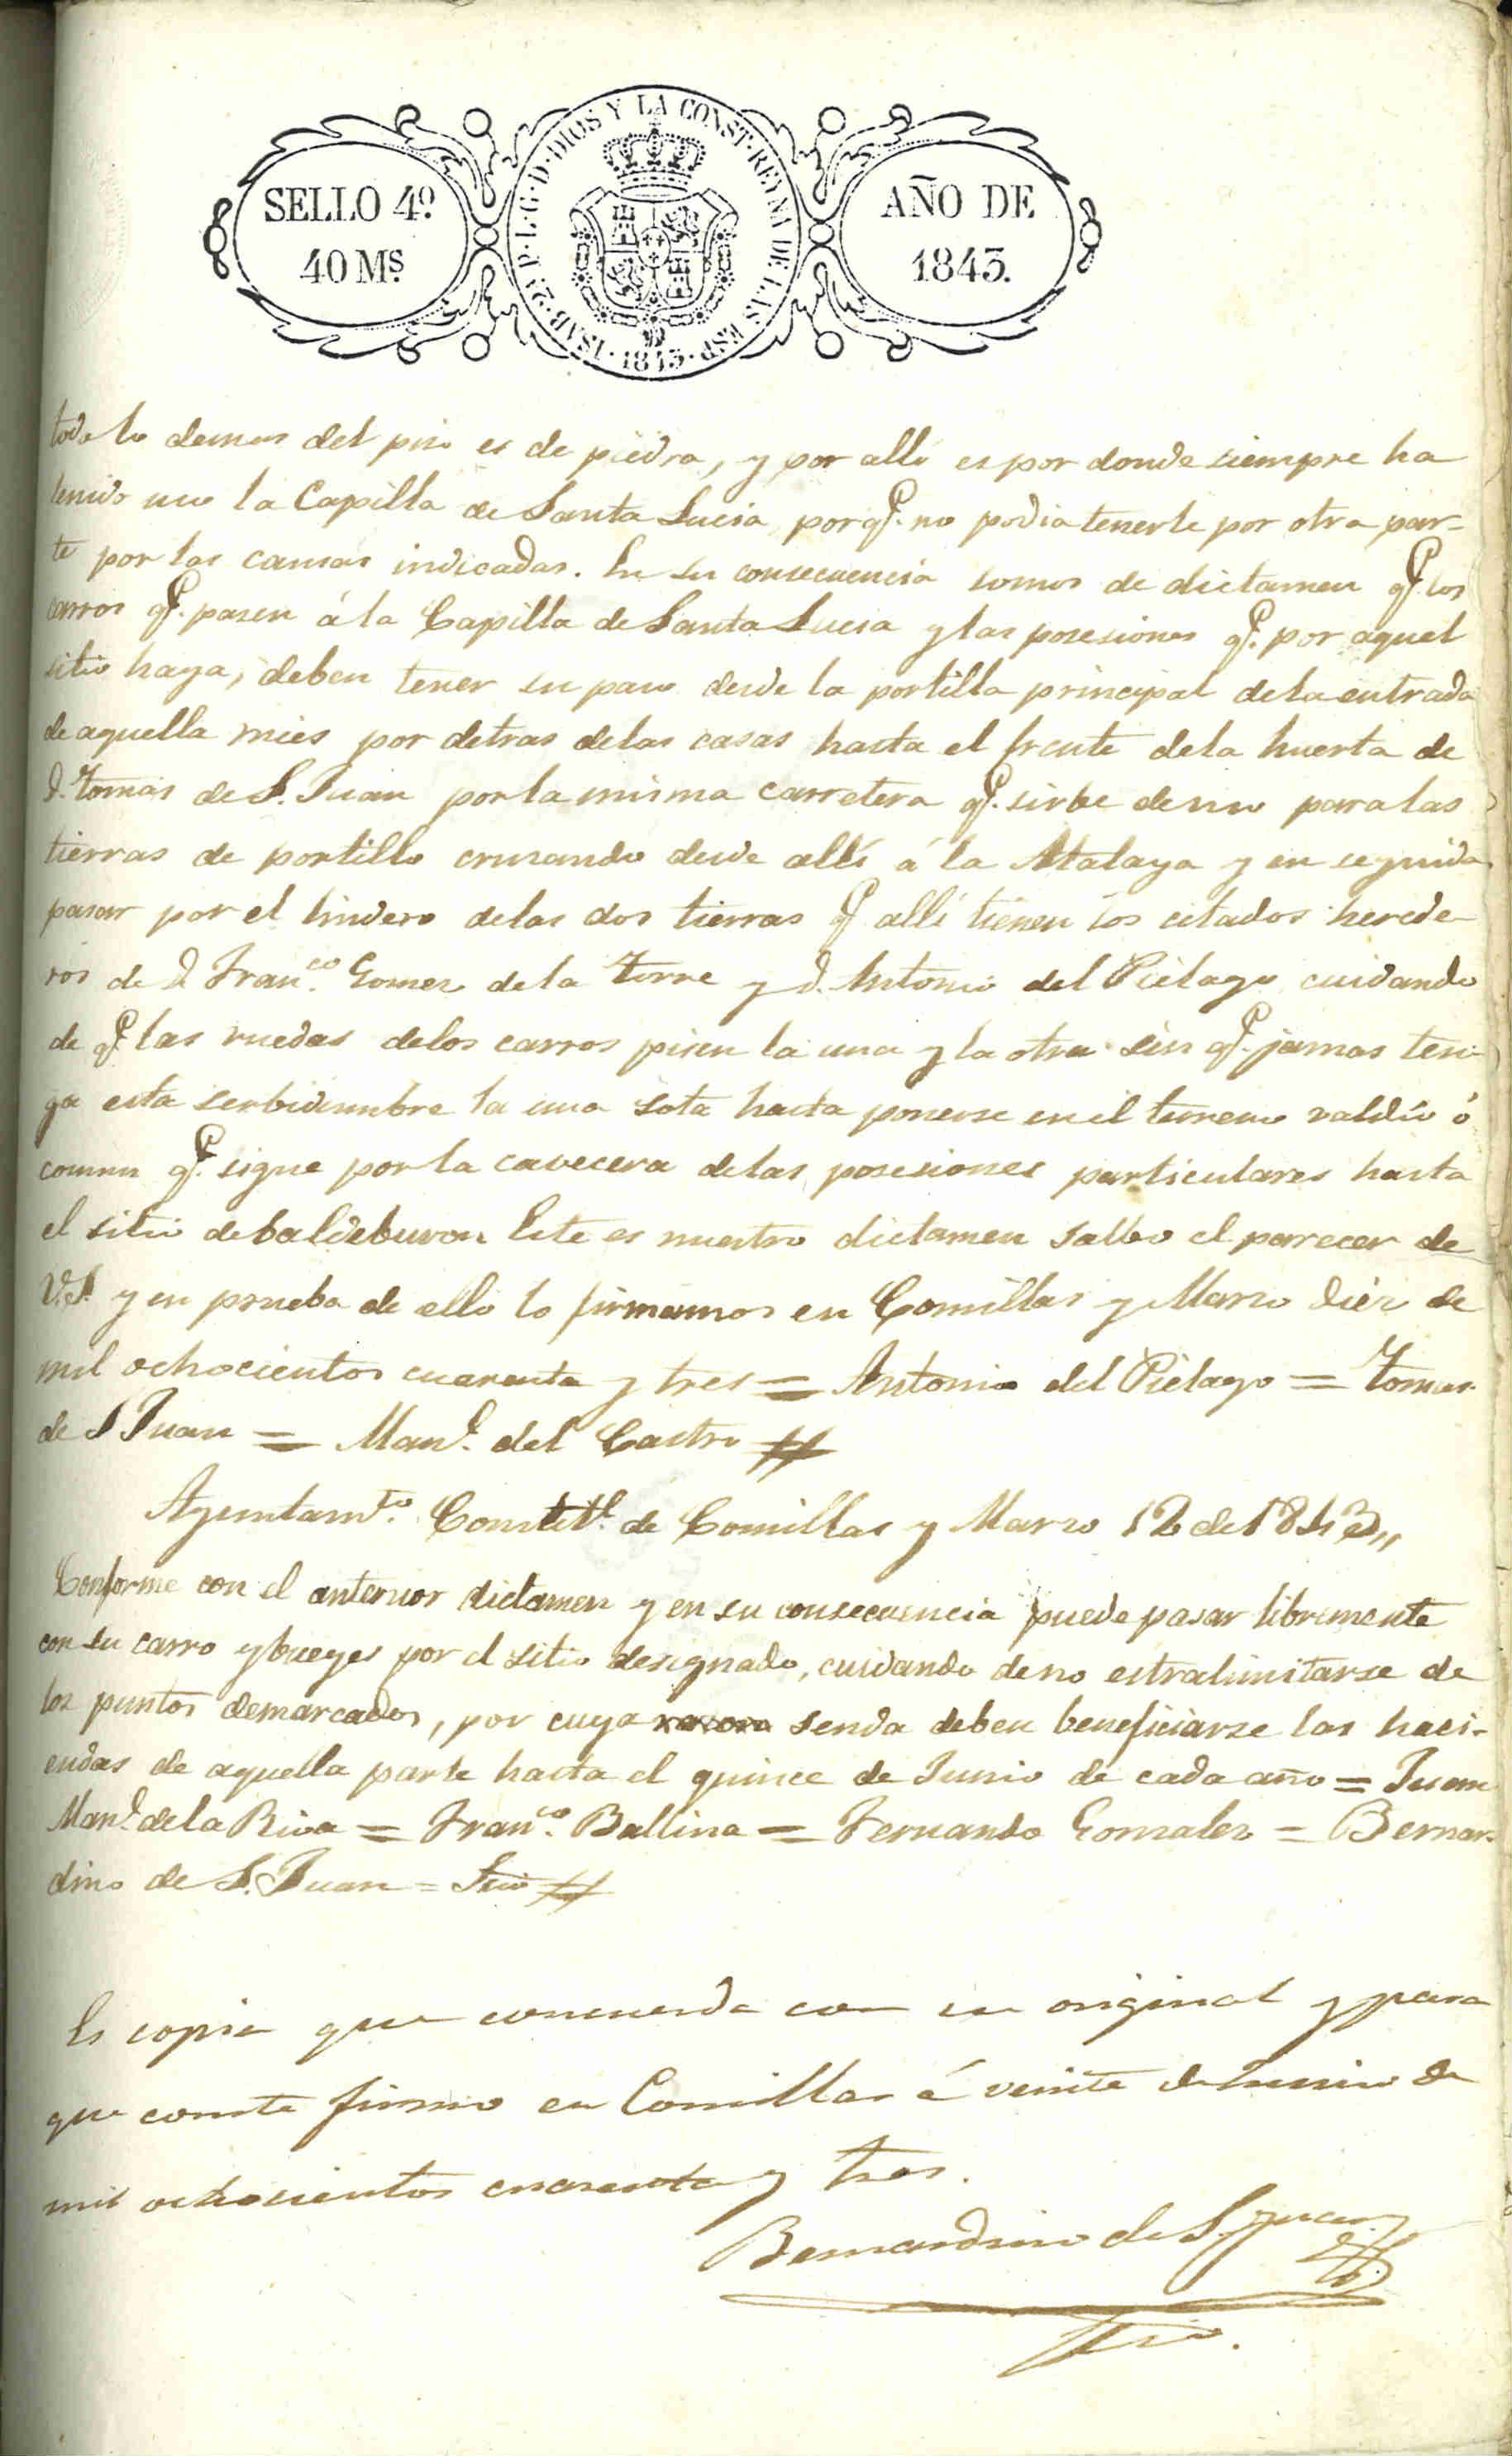 SELLO 4º.
40 Mˢ.
ISAB. 2ª. P. L. G. D. DIOS Y LA CONST. REYNA DE LAS ESP. 1843.
AÑO DE
1843.
todo lo demas del piso es de piedra, y por alli es por donde siempre ha
tenido uso la Capilla de Santa Lucia porq.e no podia tenerle por otra par-
te por las causas indicadas. En su consecuencia somos de dictamen q.e los
carros q.e pasen á la Capilla de Santa Lucia y las posesiones q.e por aquel
sitio haya, deben tener su paso desde la portilla principal dela entrada
de aquella mies por detras delas casas hasta el frente dela huerta de
D. Tomas de S. Juan por la misma carretera q.e sirbe de uso para las
tierras de portillo crusando desde allí á la Atalaya y en seguida
pasar por el lindero delas dos tierras q.e allí tienen los citados herede-
ros de D Fran.co Gomez dela Torre y D. Antonio del Piélago cuidando
de q.e las ruedas delos carros pisen la una y la otra sin q.e jamas ten-
ga esta serbidumbre la una sola hasta ponerse en el terreno valdío ó
comun q.e sigue por la cavecera delas posesiones particulares hasta
el sitio de baldebuvon Este es nuestro dictamen salbo el parecer de
V.S. y en prueba de ello lo firmamos en Comillas y Marzo diez de
mil ochocientos cuarenta y tres = Antonio del Piélago = Tomas
de S Juan = Man.l del Castro #
Ayuntam.to Constit.l de Comillas y Marzo 12 de 1843,,
Conforme con el anterior dictamen y en su consecuencia puede pasar libremente
con su carro y bueyes por el sitio designado, cuidando de no estralimitarse de
los puntos demarcados, por cuya senda deben beneficiarse las haci-
endas de aquella parte hasta el quince de Junio de cada año = Juan
Man.l dela Riva = Fran.co Ballina = Fernando Gonzalez = Bernar-
dino de S. Juan = Srio #
Es copia que concuerda con su original y para
que conste firmo en Comillas á veinte de Junio de
mil ochocientos cuarenta y tres.
Bernardino de S. Juan
Srio.